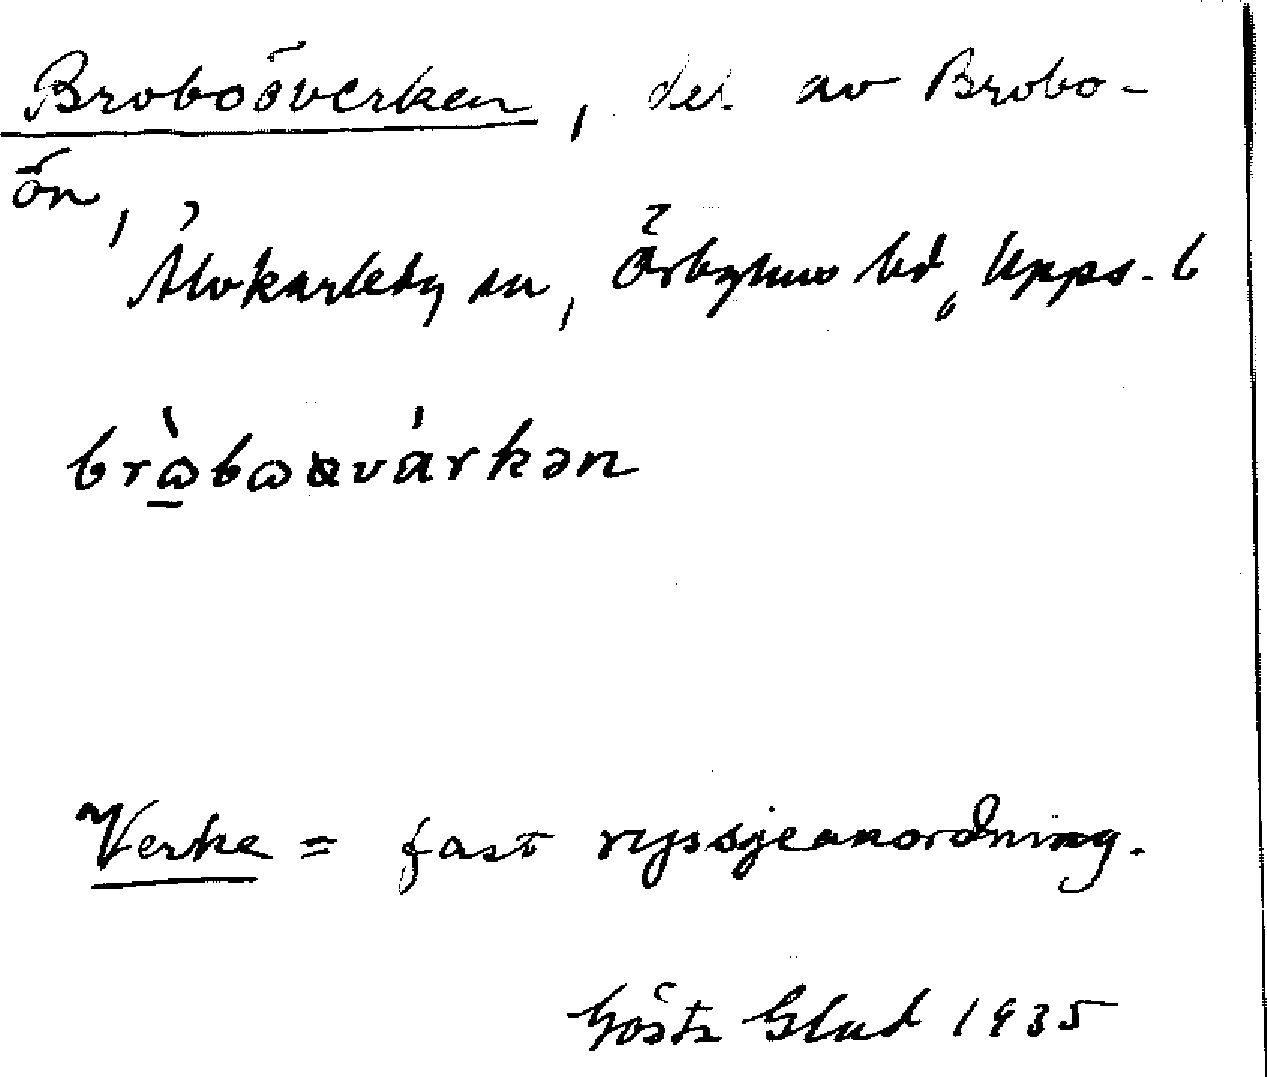 Broboöverken, del av Brobo-
ön,
Älvkarleby sn, Örbyhus hd, Upps. l
brὼbωvárkən
Verke = fast ryssjeanordning.
Gösta Glad 1935